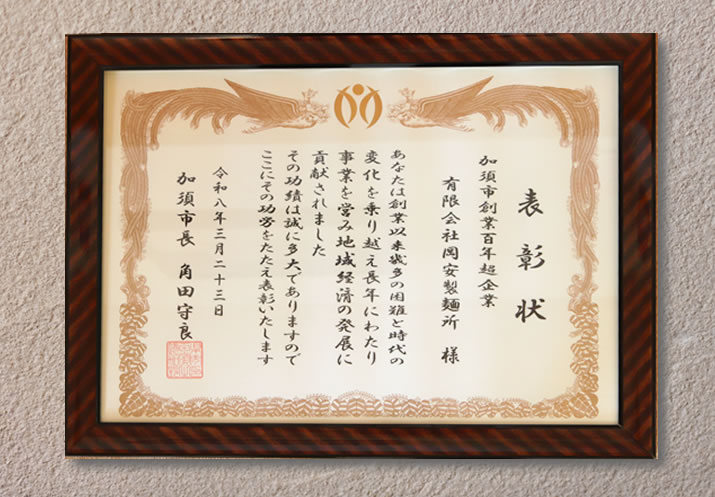 表彰状
加須市創業百年超企業
有限会社岡安製麺所 様
あなたは創業以来幾多の困難と時代の
変化を乗り越え長年にわたり
事業を営み地域経済の発展に
貢献されました
その功績は誠に多大でありますので
ここにその功労をたたえ表彰いたします
令和八年三月二十三日
加須市長 角田守良